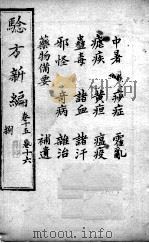 中暑 痧症 霍亂
瘧疾 黃疸 瘟疫
蠱毒 諸血 諸汗
邪怪 奇病 雜治
藥物備要 補遺
騐方新編
卷十五 卷十六
捌